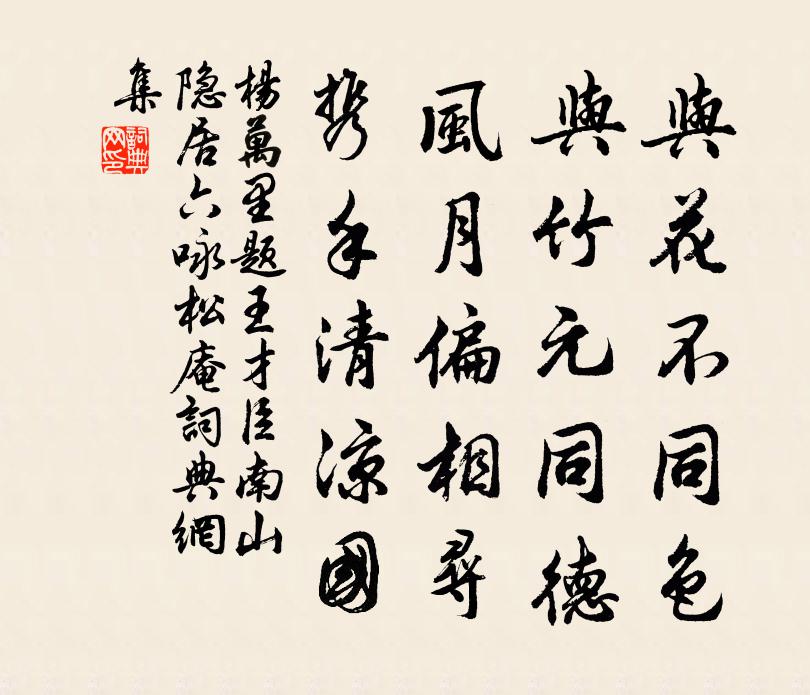 與花不同色
與竹元同德
風月偏相尋
携手清涼國
楊萬里題王才臣南山
隐居六咏松庵詞典網
集
詞典网印